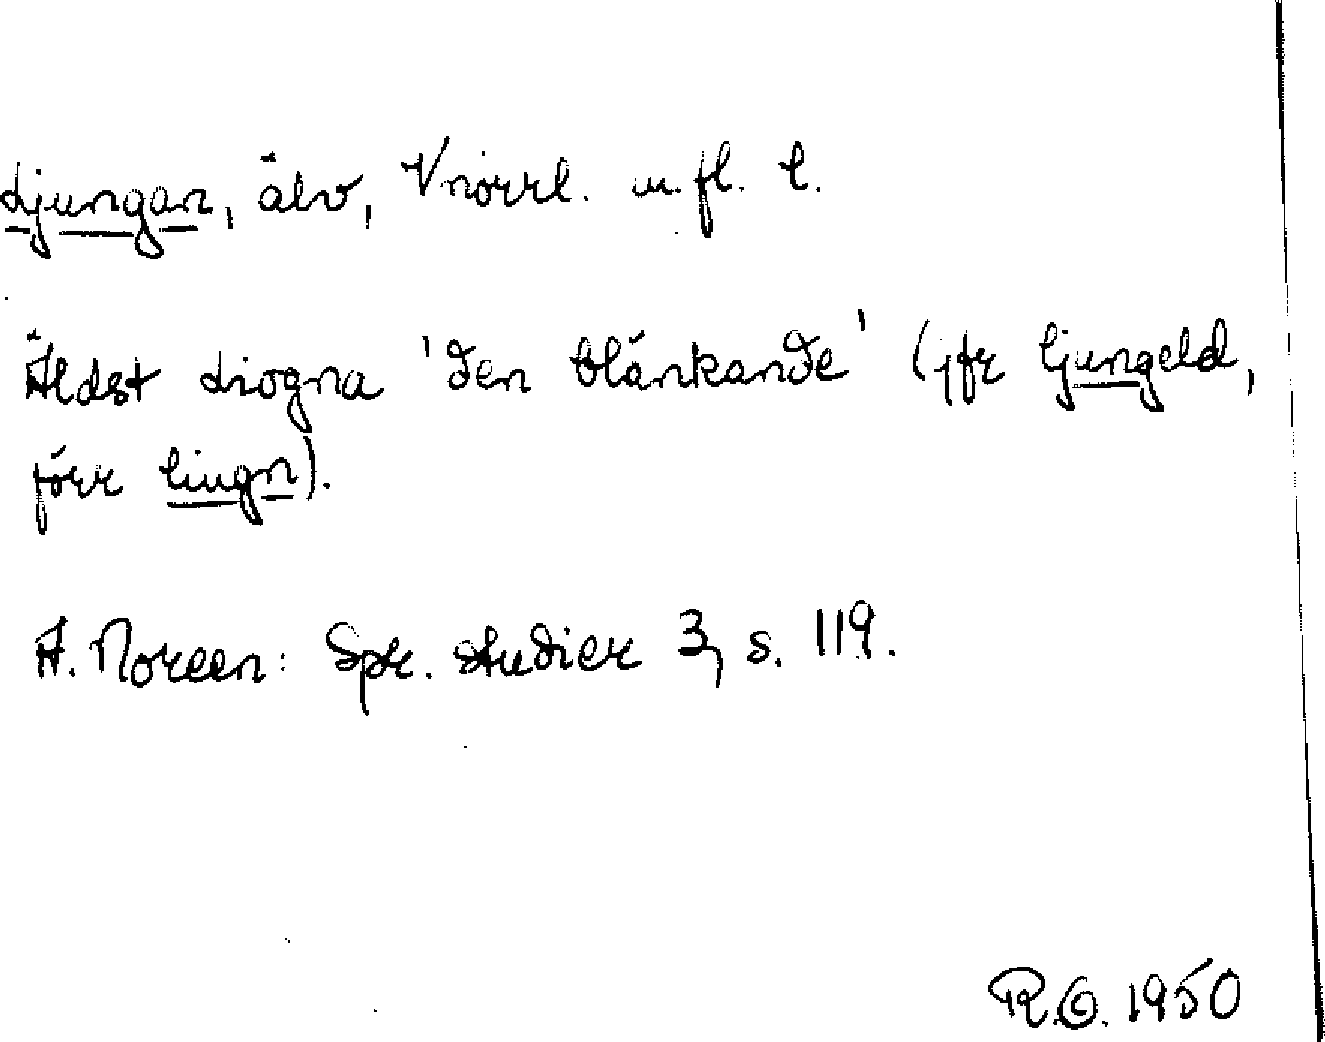 Ljungan, älv, Vnorrl. m.fl. l.
Äldst Liogna 'den blänkande' (jfr ljungeld,
förr liugn).
A. Noreen: Spr. studier 3, s. 119.
R.G. 1950